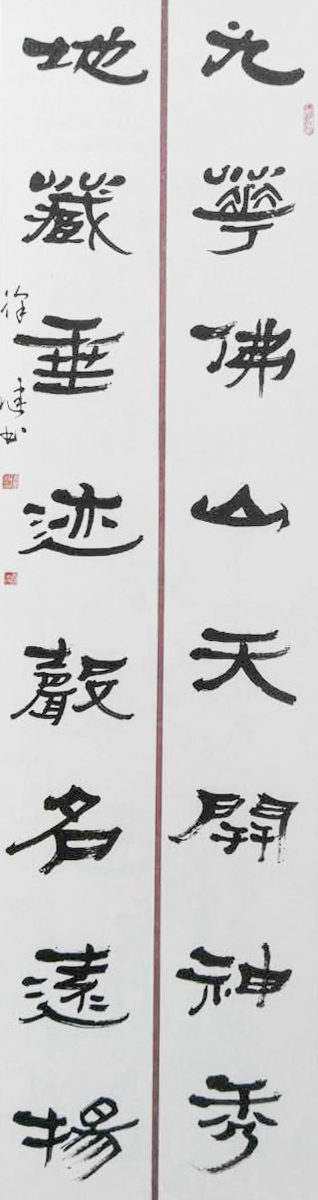 九華佛山天開神秀
地藏垂迹聲名遠揚
徐 书